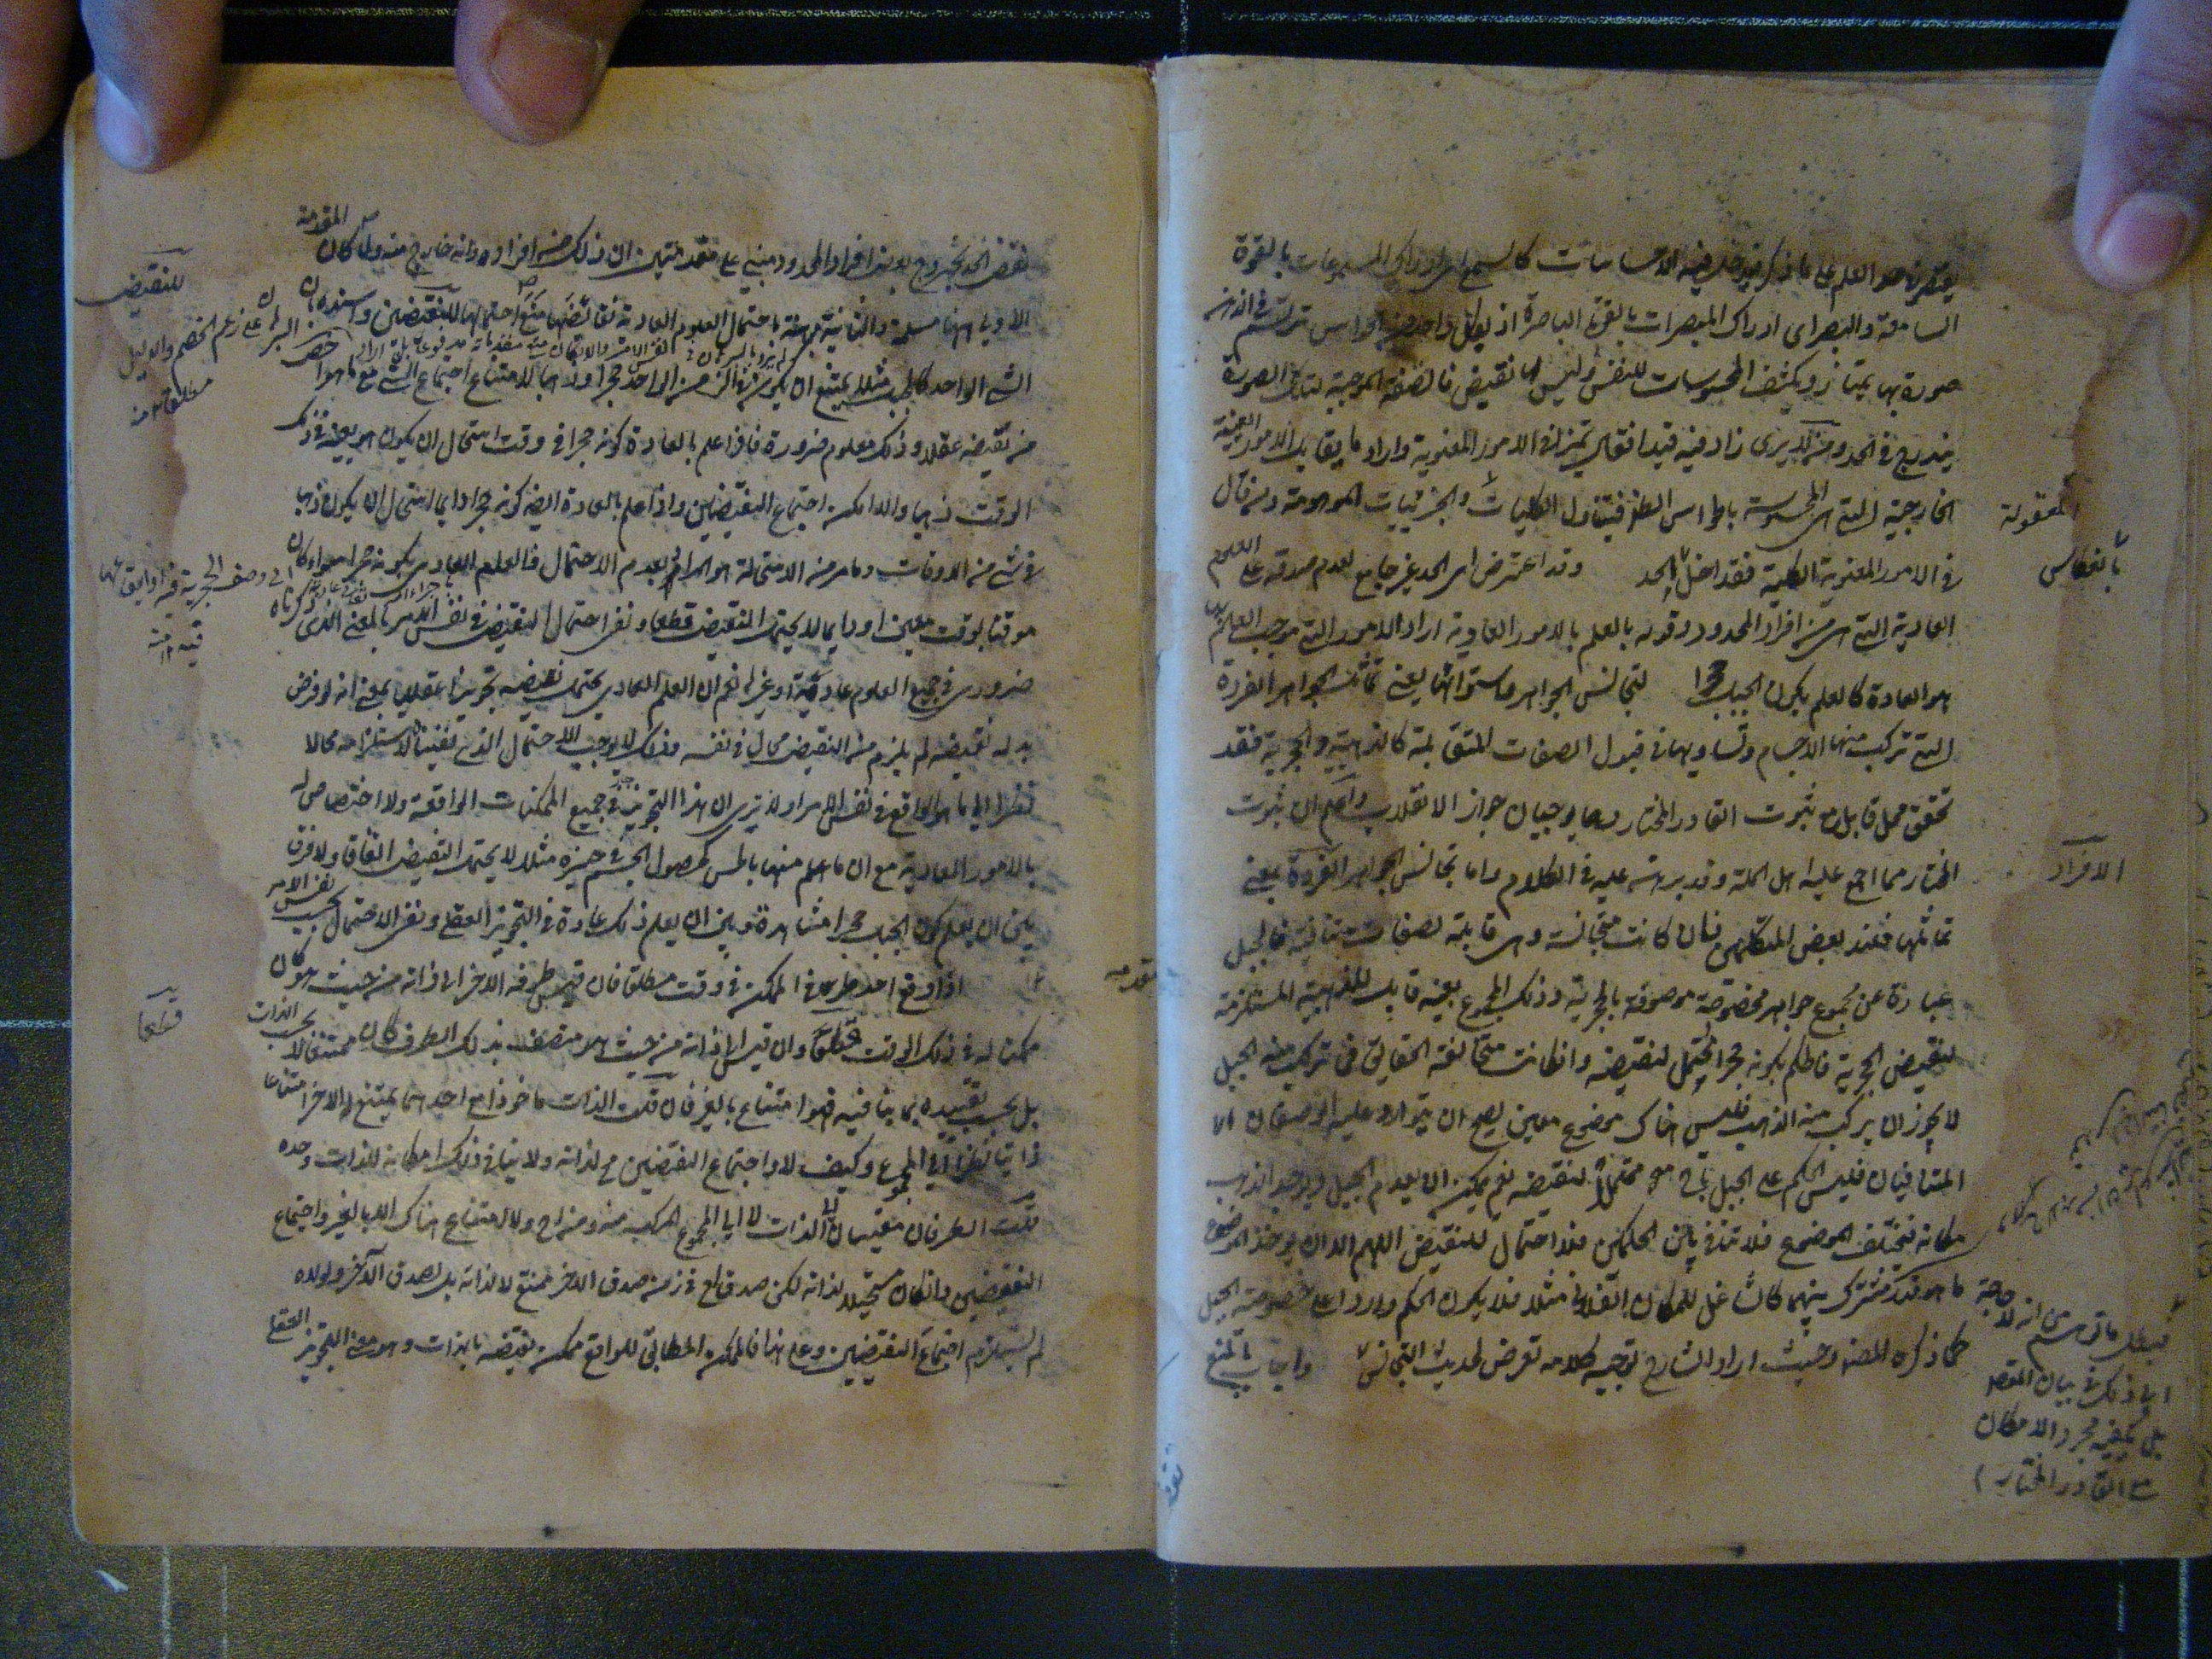 يقتصر في حد العلم على ما ذكر فيدخل فيه الاحساسات كالسمع اى ادراك المسموعات بالقوة
السامعة والبصر اى ادراك المبصرات بالقوة الباصرة اذ بكل واحد من الحواس ترتسم في الذهن
صورة بها يمتاز وينكشف المحسوسات للنفس وليس لها نقيض فالصفة الموجبة لتلك الصورة
يندرج في الحد ومن لا يرى زاد فيه قيدا فقال تمييزا في الامور المعنوية واراد ما يقابل الامور العينية
الخارجية التي هي المحسوسة بالحواس الظاهرة فيتناول الكليات والجزئيات الموهومة ومن قال
في الامور المعنوية الكلية فقد اخل بالحد وقد اعترض اى الحد غير جامع لعدم صدقه على العلوم
العادية التي هي من افراد المحدود وقوله بالعلم بالامور العادية اراد الامور التي موجب العلم بها
هو العادة كالعلم بكون الجبل حجرا لتجانس الجواهر واستوائها يعنى تماثل الجواهر الفردة
التي تركب منها الاجسام وتساويها في قبول الصفات المتقابلة كالذهبية والحجرية فقد
تحقق محل قابل مع ثبوت القادر المختار وهما يوجبان جواز الانقلاب واعلم ان ثبوت
المختار مما اجمع عليه اهل الملة وقد برهن عليه في الكلام واما تجانس الجواهر الفردة بمعنى
تماثلها فعند بعض المتكلمين فان كانت متجانسة وهى قابلة لصفات متنافية فالجبل
عبارة عن مجموع جواهر مخصوصة موصوفة بالحجرية وذلك المجموع بعينه قابل للذهبية المستلزمة
لنقيض الحجرية فالحكم بكونه حجرا يحتمل لنقيضه وان كانت متخالفة الحقائق فما تركب منه الجبل
لا يجوز ان يركب منه الذهب فليس هناك موضوع معين يصح ان يتوارد عليه الوصفان
المتنافيان فليس الحكم على الجبل بانه حجر محتملا لنقيضه نعم يمكن ان يعدم الجبل ويوجد الذهب
مكانه فيختلف الموضوع فلا تنافي بين الحكمين فلا احتمال للنقيض اللهم الا ان يوخذ الموضوع
ما هو قدر مشترك بينهما كالشاغل للمكان الفلاني مثلا فلا يكون الحكم واردا على خصوصية الجبل
كما ذكره المصنف وحيث اراد الشارح توجيه كلامه تعرض لحديث التجانس واجاب بالمنع
المعقولة
بانعكاسه
الافراد
فبطل ما توهم من انه لا حاجة
الى ذلك في بيان المقصد
بل يكفيه مجرد الامكان
مع القادر المختار
نقض الحد بخروج بعض افراد المحدود مبنى على مقدمتين ان ذلك من افراده وانه خارج منه ولما كان المقدمة
الاولى ههنا مسلمة والثانية مبينة باحتمال العلوم العادية نقائضها منع احتمالها للنقيضين واسنده بان
الشئ الواحد كالجبل مثلا يمتنع ان يكون في الزمن الواحد حجرا وذهبا لامتناع اجتماع الشئ مع ما هو اخص
من نقيضه عقلا وذلك معلوم ضرورة فاذا علم بالعادة كونه حجرا في وقت استحال ان يكون هو بعينه في ذلك
الوقت ذهبا والا امكن اجتماع النقيضين واذا علم بالعادة ايضا كونه حجرا دايما استحال ان يكون ذهبا
في شئ من الاوقات وما مر من الاستحالة هو المراد بعدم الاحتمال فالعلم العادى بكونه حجرا سواء كان
موقتا بوقت معين او دايما لا يحتمل النقيض قطعا ونفى احتمال النقيض في نفس الامر بالمعنى الذى ذكرناه
ضرورى في جميع العلوم عادية او غيرها نعم ان العلم العادى يحتمل نقيضه تجويزا عقليا بمعنى انه لو فرض
بدله نقيضه لم يلزم من النقيض محال في نفسه وذلك لا يوجب الاحتمال الذى نفيناه لاستلزامه محالا
نظرا الى ما هو الواقع في نفس الامر او لا يرى ان هذا التجويز في جميع الممكنات الواقعة ولا اختصاص له
بالامور العادية مع ان ما علم منها بالحس كحصول الجسم في حيزه مثلا لا يحتمل النقيض اتفاقا ولا فرق
بين ان يعلم كون الجبل حجرا مشاهدة وبين ان يعلم ذلك عادة في التجويز العقلي ونفى الاحتمال بحسب نفس الامر
اذا وقع احد طرفى الممكن في وقت مطلقا فان قيس طرفه الاخر الى ذاته من حيث هو كان
ممكنا له في ذلك الوقت قطعا وان قيس الى ذاته من حيث هو متصف بذلك الطرف كان ممتنعا لا بحسب الذات
بل بحسب تقييده بما ينافيه فهو امتناع بالغير فان قلت الذات ماخوذا مع احدهما يمتنع الاخر امتناعا
ذاتيا نظرا الى المجموع وكيف لا واجتماع النقيضين مح لذاته ولا ينافي ذلك امكانه للذات وحده
قلت الطرفان مقيسان الى الذات لا الى المجموع المركب منه ومن اح ولا امتناع هناك الا بالغير واجتماع
النقيضين وان كان مستحيلا لذاته لكن صدق كل في زمن صدق الاخر ممتنع لا لذاته بل لصدق الآخر ولولاه
لم يستلزم اجتماع النقيضين وعلى هذا فالممكن المطابق للواقع ممكن نقيضه بالذات وهو معنى التجويز العقلى
للنقيض
قطعا